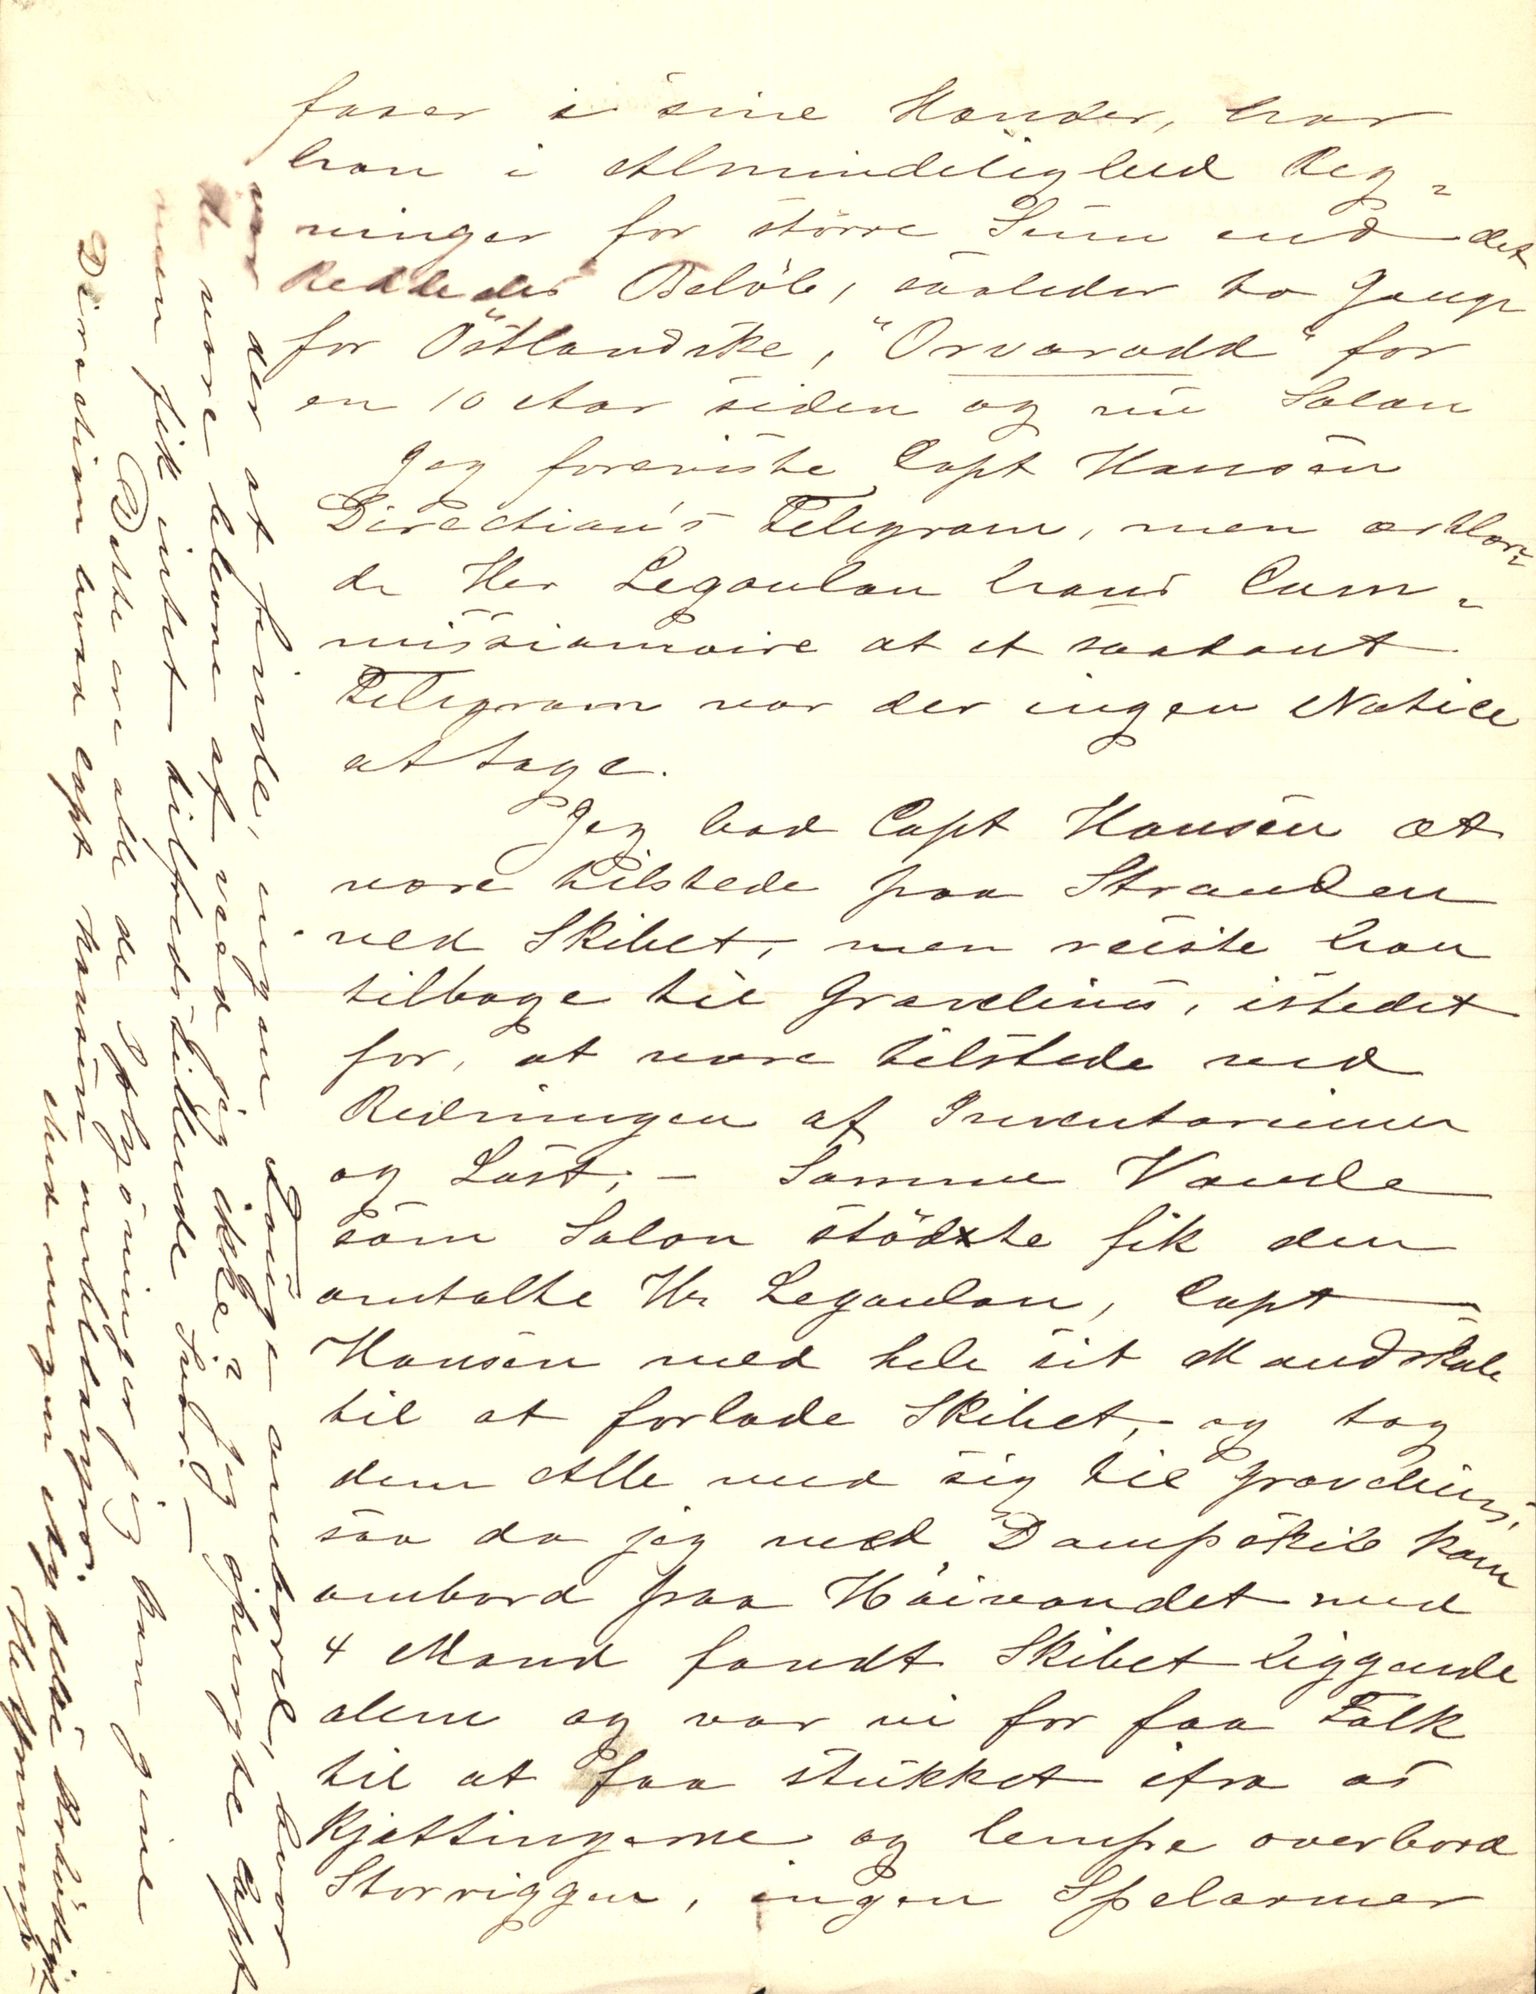 faaer i sine Hænder, har
han i Almindelighed Reg-
ninger for större Sum end det
Reddedes Belöb, saaledes to Gange
for Östlandske, "Orvarodd" for
en 10 Aar siden og nu Solon
Jeg foreviste Capt Hansen
Direction's Telegram, men erklær-
de Her Legoulon hans Com-
missionaire at et saadant
Telegram var der ingen Notice
at tage.
Jeg bad Capt Hansen at
være tilstede paa Stranden
ved Skibet, men reiste han
tilbage til Gravelines, istedet
for, at være tilstede ved
Redningen af Inventariumer
og Last; - Samme Vande
som Solon stödte fik den
omtalte Hr Legoulon, Capt
Hansen med hele sit Mandskab
til at forlade Skibet, og tog
dem Alle med sig til Gravelines,
saa da jeg med Dampskib kom
ombord paa Höivandet med
4 Mand fandt Skibet liggende
alene og var vi for faa Folk
til at faa stukket ifra os
Kjættingerne og lempe overbord
Storriggen, ingen Spelarmer
var der at finde, ingen Lamper ombord, hvor
de vare blevne af ved jeg ikke? Jeg spurgde Capt
men fik intet tilfredstillende Svar. —
Dette ere alle de Oplysninger jeg kan give
Direction hvad Capt Hansen anbelanger.
Med megen Agtelse Ærbödigst